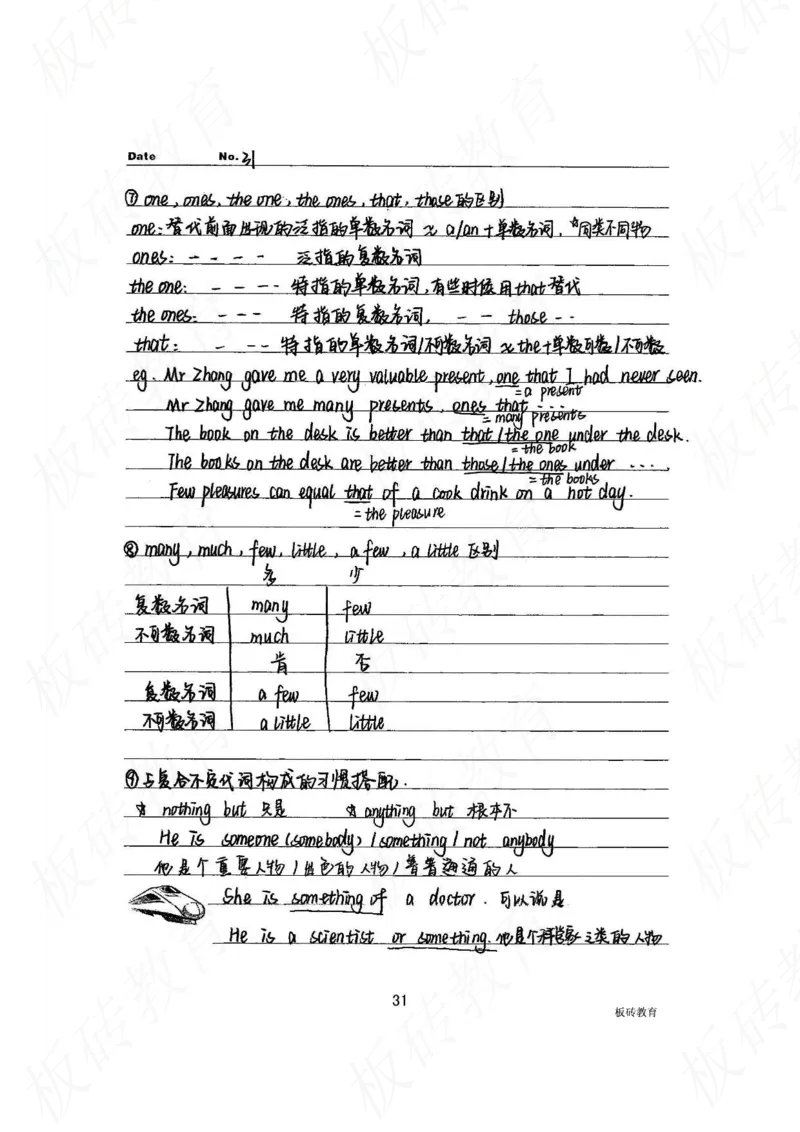 Date No. 31
⑦ one, ones, the one, the ones, that, those的区别
one: 替代前面出现的泛指的单数名词 ≈ a/an + 单数名词, *同类不同物
ones: - - - - 泛指的复数名词
the one: - - - - 特指的单数名词,有些时候用that替代
the ones: - - - 特指的复数名词, - - those - -
that: - - - 特指的单数名词/不可数名词 ≈ the+单数可数/不可数
eg. Mr Zhang gave me a very valuable present, one that I had never seen.
= a present
Mr Zhang gave me many presents, ones that ...
= many presents
The book on the desk is better than that / the one under the desk.
= the book
The books on the desk are better than those / the ones under ....
= the books
Few pleasures can equal that of a cook drink on a hot day.
= the pleasure
⑧ many, much, few, little, a few, a little 区别
多 少
复数名词 many few
不可数名词 much little
肯 否
复数名词 a few few
不可数名词 a little little
⑨ 与复合不定代词构成的习惯搭配.
☆ nothing but 只是 ☆ anything but 根本不
He is someone (somebody) / something / not anybody
他是个重要人物 / 出色的人物 / 普普通通的人
She is something of a doctor. 可以说是
He is a scientist or something. 他是个科学家之类的人物
31
板砖教育